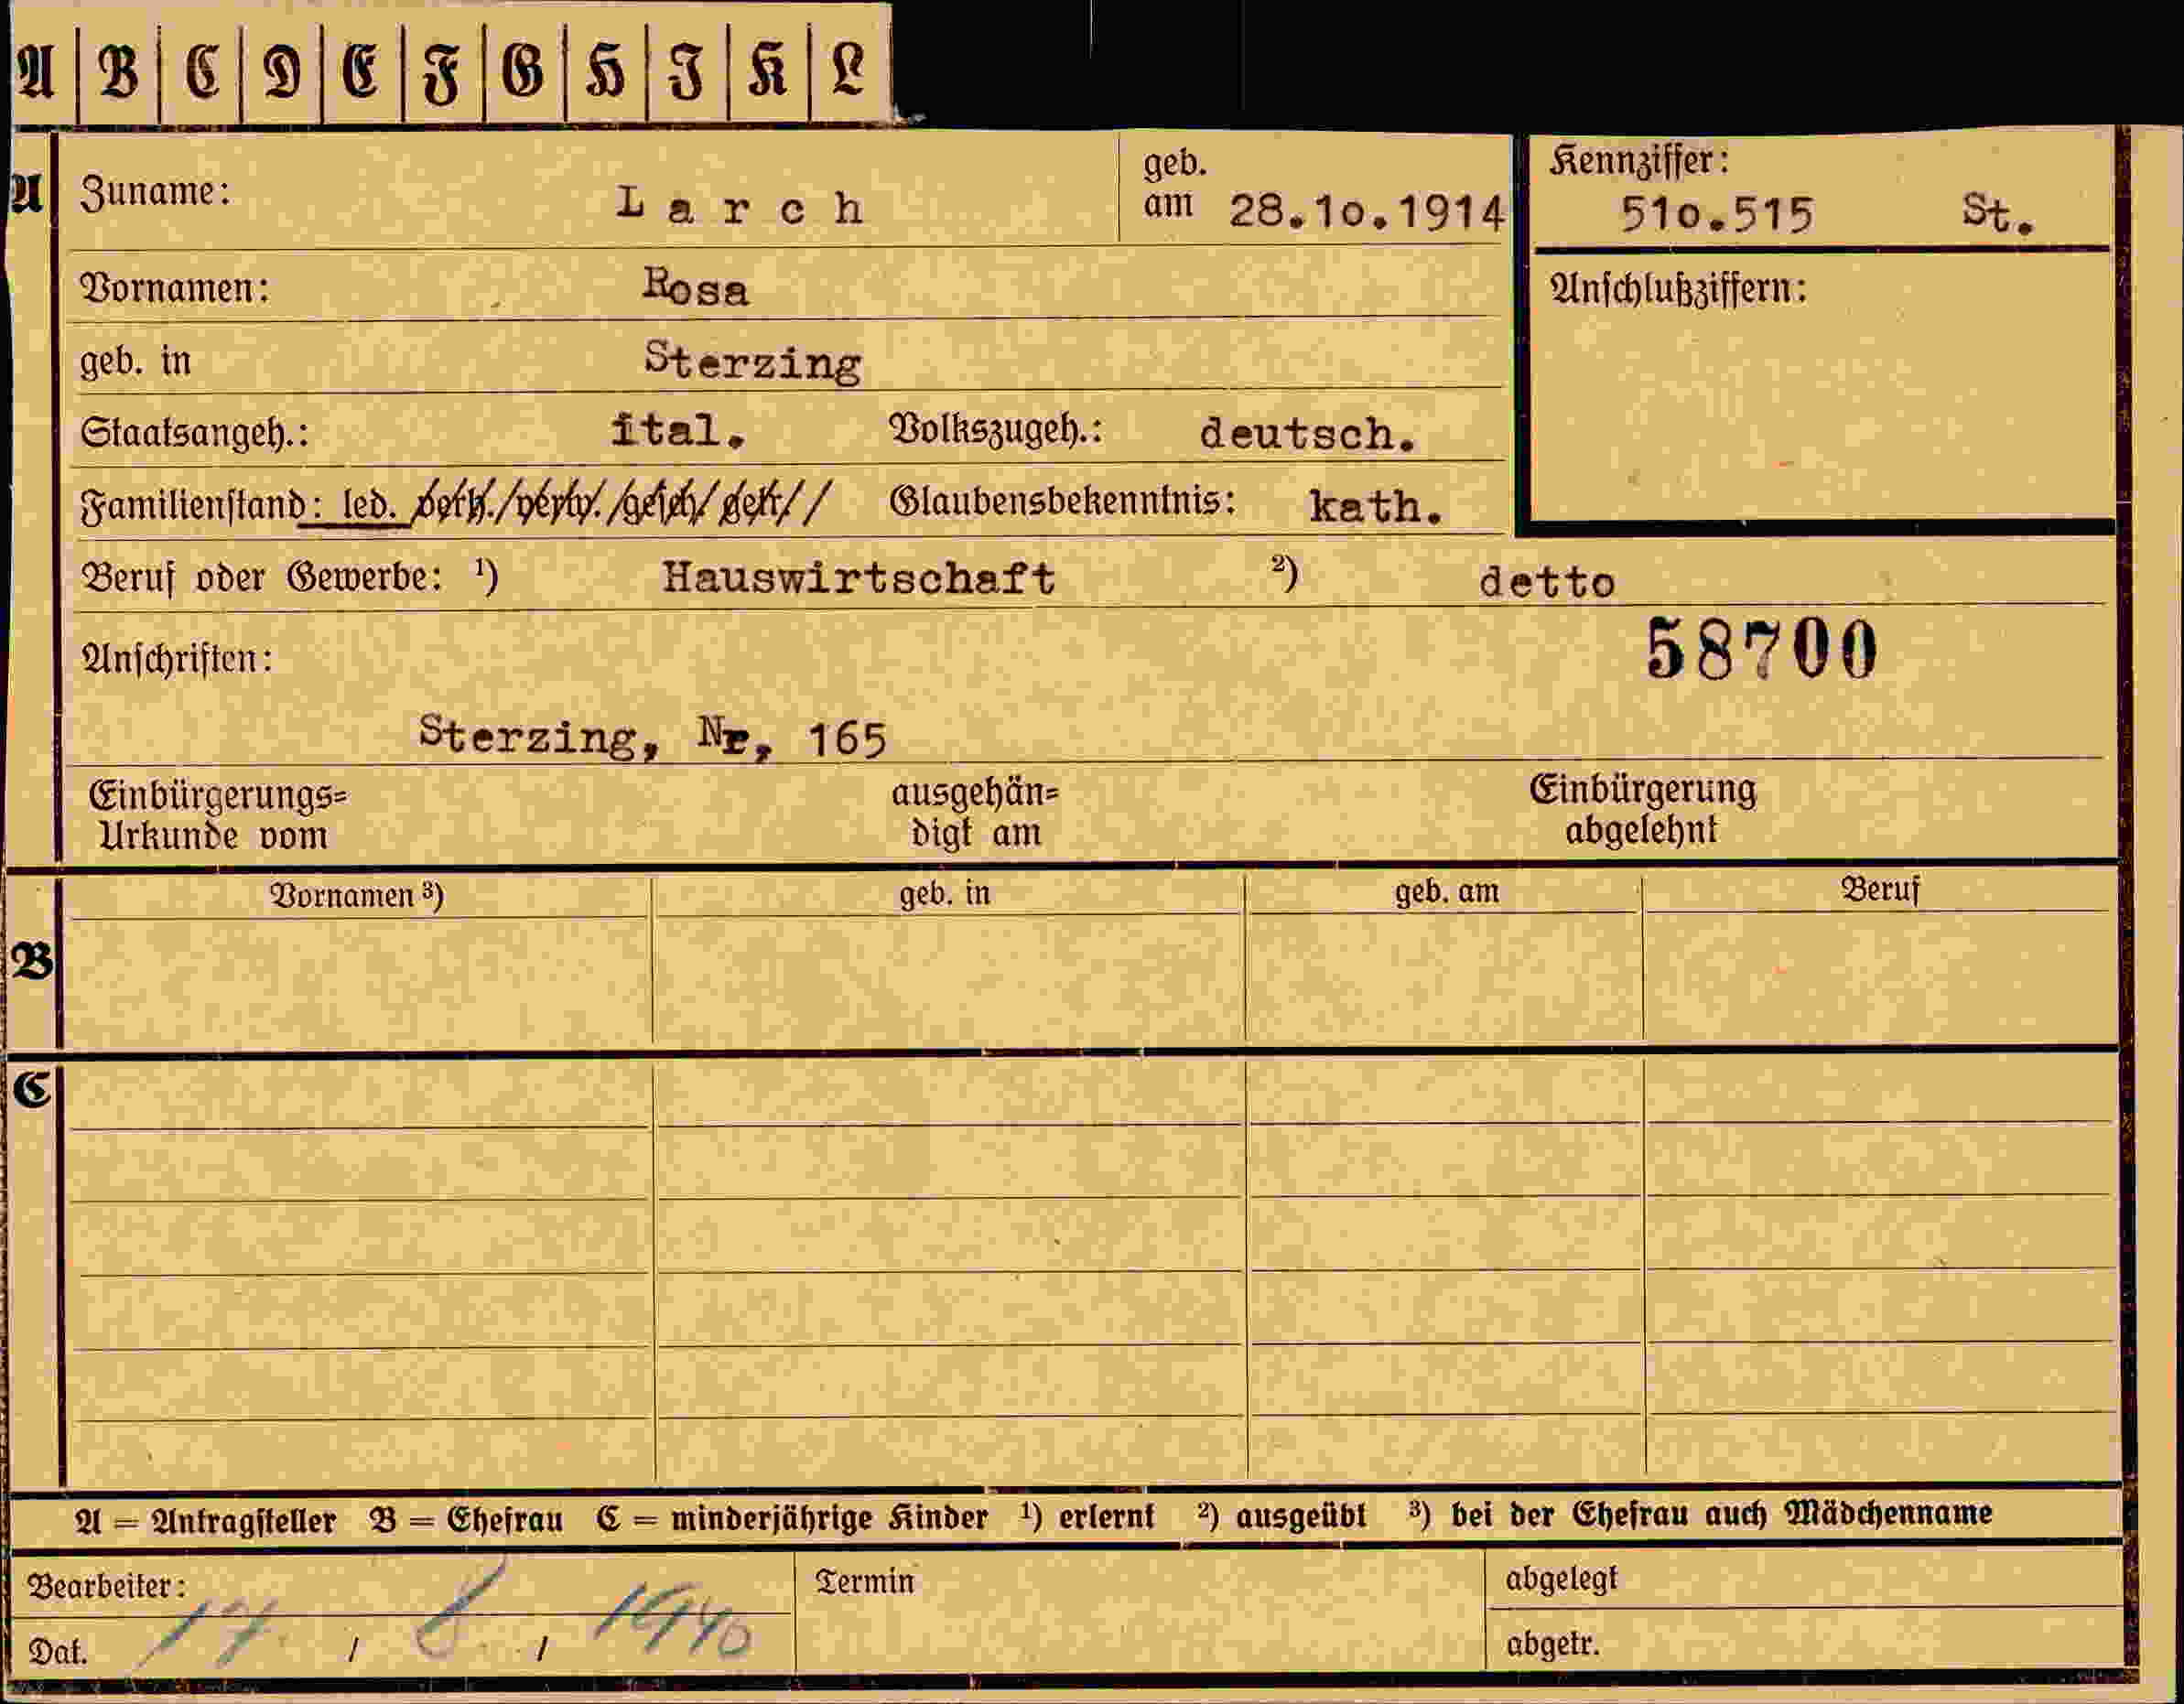 A B C D E F G H I K L
A Zuname: Larch geb. am 28.10.1914 Kennziffer: 510.515 St.
Vornamen: Rosa Anschlußziffern:
geb. in Sterzing
Staatsangeh.: ital. Volkszugeh.: deutsch.
Familienstand: led. verh./verw./gesch/getr// Glaubensbekenntnis: kath.
Beruf oder Gewerbe: ¹) Hauswirtschaft ²) detto
58700
Anschriften:
Sterzing, Nr, 165
Einbürgerungs= ausgehän= Einbürgerung
Urkunde vom digt am abgelehnt
Vornamen ³) geb. in geb. am Beruf
B
C
A = Antragsteller B = Ehefrau C = minderjährige Kinder ¹) erlernt ²) ausgeübt ³) bei der Ehefrau auch Mädchenname
Bearbeiter: Termin abgelegt
Dat. 17. / 8. / 1940 abgetr.